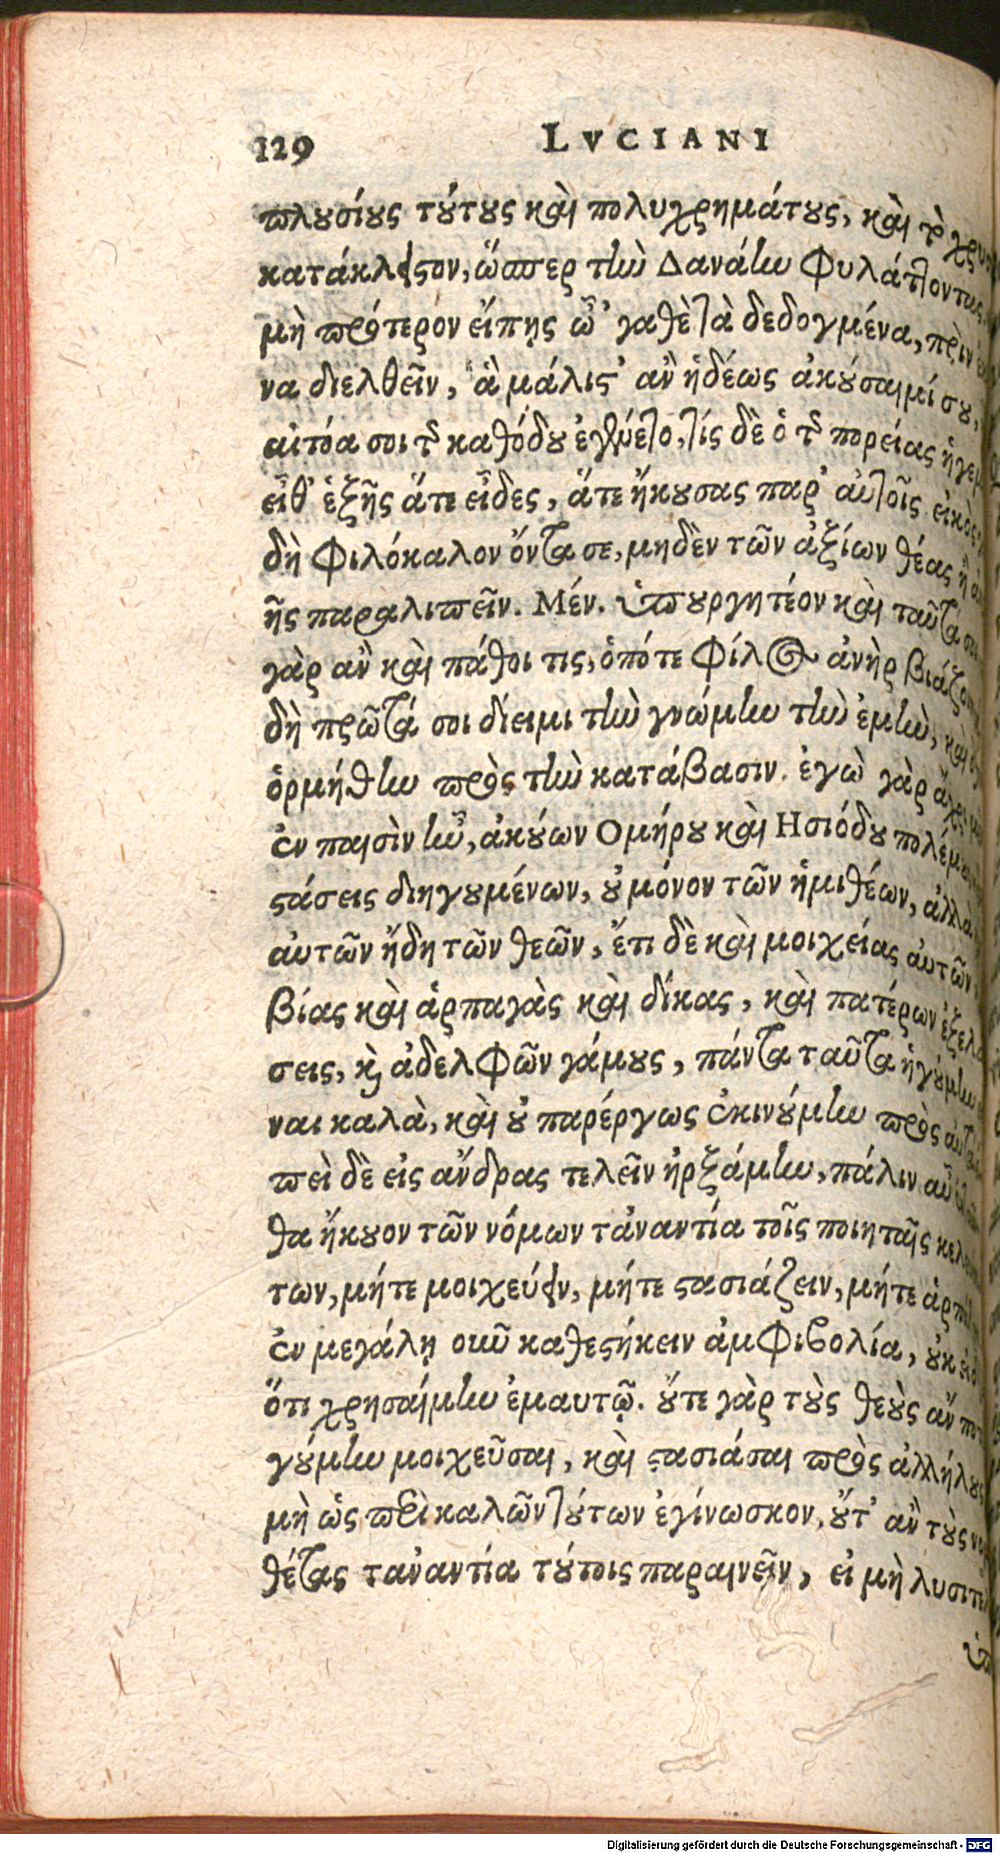 129 LVCIANI
πλουσίους τούτους καὶ πολυχρημάτους, καὶ τὸ
κατάκλειστον, ὥσπερ τὴν Δανάην φυλάττοντας,
μὴ πρότερον εἴπῃς ὦ' γαθὲ τὰ δεδογμένα, πρὶν
να διελθεῖν, ἃ μάλιστ' ἂν ἡδέως ἀκούσαιμί σου,
αἰτία σοι τῆς καθόδου ἐγένετο, τίς δὲ ὁ τῆς πορείας
εἶθ' ἑξῆς ἅτε εἶδες, ἅτε ἤκουσας παρ' αὐτοῖς
δὴ φιλόκαλον ὄντα σε, μηδὲν τῶν ἀξίων θέας ἢ
ῆς παραλιπεῖν. Μέν. ὑπουργητέον καὶ ταῦτα
γὰρ ἂν καὶ πάθοι τις, ὁπότε φίλος ἀνὴρ
δὴ πρῶτά σοι δίειμι τὴν γνώμην τὴν ἐμὴν,
ὁρμήθην πρὸς τὴν κατάβασιν. ἐγὼ γὰρ
ἐν παισὶν ὢν, ἀκούων Ομήρου καὶ Ησιόδου
στάσεις διηγουμένων, οὐ μόνον τῶν ἡμιθέων,
αὐτῶν ἤδη τῶν θεῶν, ἔτι δὲ καὶ μοιχείας αὐτῶν
βίας καὶ ἁρπαγὰς καὶ δίκας, καὶ πατέρων
σεις, κ̀ ἀδελφῶν γάμους, πάντα ταῦτα ἡγούμην
ναι καλὰ, καὶ οὐ παρέργως ἐκινούμην πρὸς
πεὶ δὲ εἰς ἄνδρας τελεῖν ἠρξάμην, πάλιν αὖ
θα ἤκουον τῶν νόμων τἀναντία τοῖς ποιηταῖς
των, μήτε μοιχεύειν, μήτε στασιάζειν, μήτε
ἐν μεγάλῃ οὖν καθεστήκειν ἀμφιβολία, οὐκ
ὅτι χρησαίμην ἐμαυτῷ. οὔτε γὰρ τοὺς θεοὺς ἄν
γούμην μοιχεῦσαι, καὶ στασιάσαι πρὸς
μὴ ὡς περὶ καλῶν τούτων ἐγίνωσκον, οὔτ' ἂν τοὺς
θέτας τἀναντία τούτοις παραινεῖν, εἰ μὴ
Digitalisierung gefördert durch die Deutsche Forschungsgemeinschaft - DFG